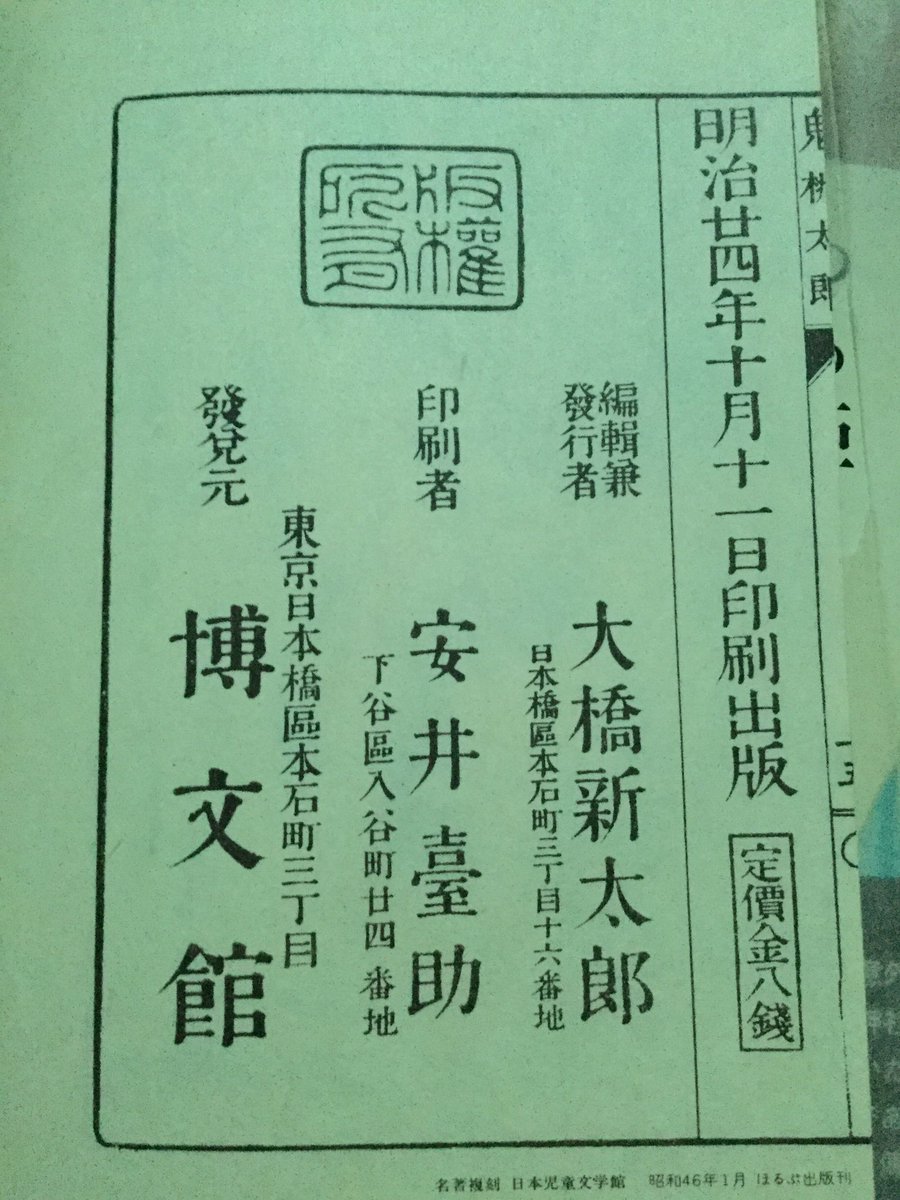 鬼桃太郎
明治廿四年十月十一日印刷出版
定價金八錢
版權所有
編輯兼
發行者
大橋新太郎
日本橋區本石町三丁目十六番地
印刷者
安井臺助
下谷區入谷町廿四番地
東京日本橋區本石町三丁目
發兌元
博文館
名著複刻 日本児童文学館 昭和46年1月 ほるぷ出版刊